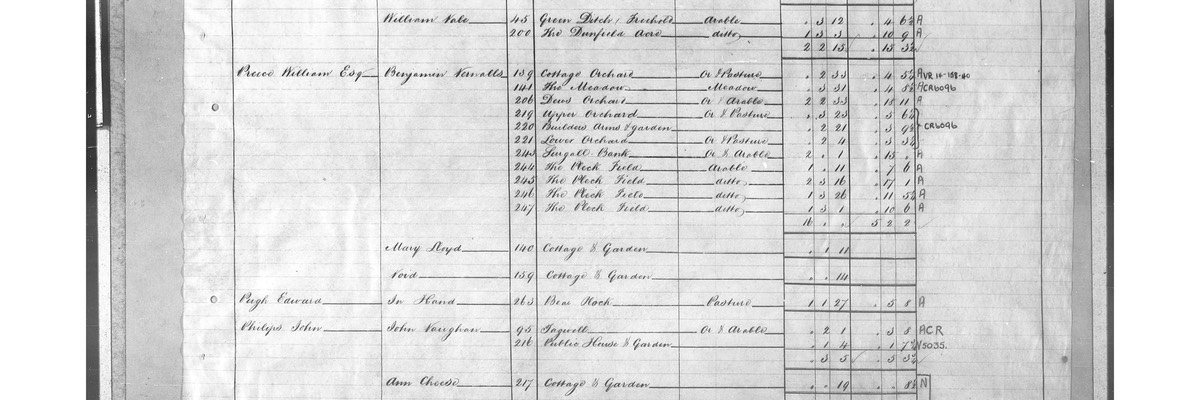 William Vale 45 Green Ditch, Freehold Arable . 3 12 . 4 6½ A
200 The Dunfield Acre ditto 1 3 3 . 10 9 A
2 2 15 . 15 3½
Preece William Esq Benjamin Vernalls 139 Cottage Orchard Or & Pasture . 2 33 . 4 5½ A VR 14-158-40
141 The Meadow Meadow . 3 31 . 4 5½ A CR6096
206 Dews Orchard Or & Arable 2 2 33 . 18 11 A
219 Upper Orchard Or & Pasture . 3 23 . 3 6½
220 Builders Arms & garden . 2 21 . 3 9½ CR6096
221 Lower Orchard Or & Pasture . 2 4 . 3 3½
243 Bank Or & Arable 2 . 1 . 13 . A
244 The Pleck Field Arable 1 . 11 . 7 6 A
245 The Pleck Field ditto 2 3 16 . 17 1 A
246 The Pleck Field ditto 1 3 26 . 11 5½ A
247 The Pleck Field ditto 1 3 1 . 10 6 A
16 . . 5 2 2
Mary Lloyd 140 Cottage & Garden . 1 11
Void 159 Cottage & Garden . . 14
Pugh Edward In Hand 263 Pasture 1 1 27 . 5 8 A
Philips John John Vaughan 95 Or & Arable . 2 1 . 3 8 ACR
216 Public House & Garden . 1 4 . 1 7½ N5035.
. 3 5 . 5 3½
Ann Cheese 217 Cottage & Garden . . 19 . . 8½ N